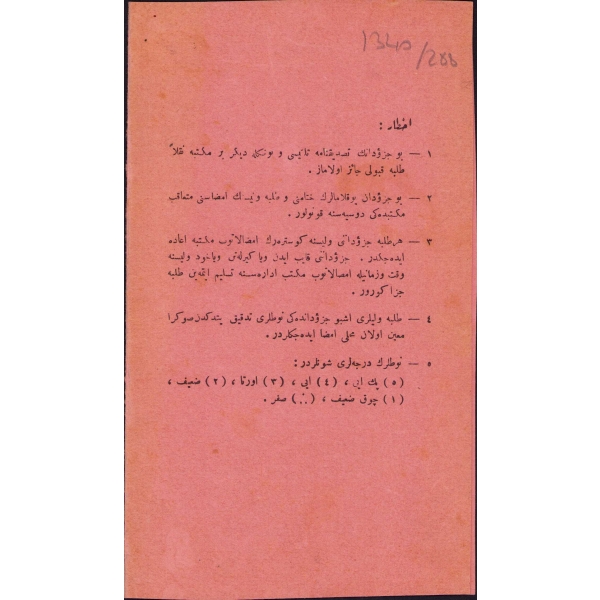 1340/288
اخطار :
١ — بو جزؤدانك تصديقنامه تلقيسى و بونكله ديكر بر مكتبه نقلاً
طلبه قبولى جائز اولاماز.
٢ — بو جزؤدان يوقلامالرك ختامنى و طلبه وليسنك امضاسنى متعاقب
مكتبده‌كى دوسيه‌سنه قونولور.
٣ — هر طلبه جزؤدانى وليسنه كوستره‌رك امضالاتوب مكتبه اعاده
ايده‌جكدر. جزؤدانى غائب ايدن ويا كيرله‌تن وياخود وليسنه
وقت وزمانيله امضالاتوب مكتب اداره‌سنه تسليم ايتمه‌ين طلبه
جزا كورور.
٤ — طلبه وليلرى اشبو جزؤدانده‌كى نوطلرى تدقيق ايتدكدن صوكرا
معين اولان محلى امضا ايده‌جكلردر.
٥ — نوطلرك درجه‌لرى شونلردر:
(٥) پك ايى ، (٤) ايى ، (٣) اورتا ، (٢) ضعيف ،
(١) چوق ضعيف ، (٠) صفر.